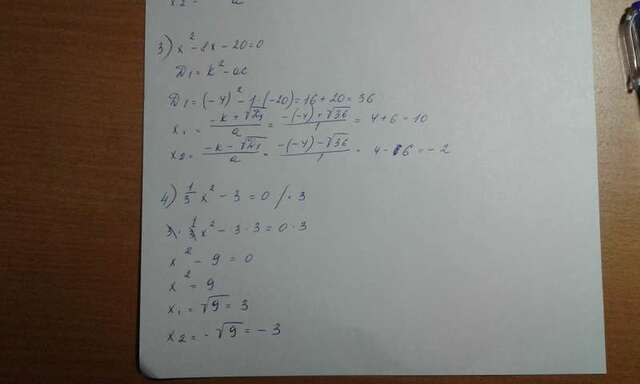 3) x² - 8x - 20 = 0
D₁ = k² - ac
D₁ = (-4)² - 1·(-20) = 16 + 20 = 36
x₁ = (-k + √D₁)/a = (-(-4) + √36)/1 = 4 + 6 = 10
x₂ = (-k - √D₁)/a = (-(-4) - √36)/1 = 4 - 6 = -2
4) 1/3 x² - 3 = 0 /·3
3· 1/3 x² - 3·3 = 0·3
x² - 9 = 0
x² = 9
x₁ = √9 = 3
x₂ = -√9 = -3